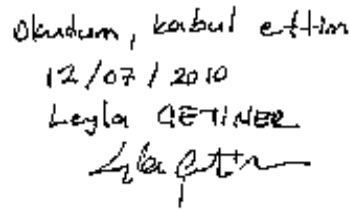 Okudum, kabul ettim
12/07/2010
Leyla ÇETİNER